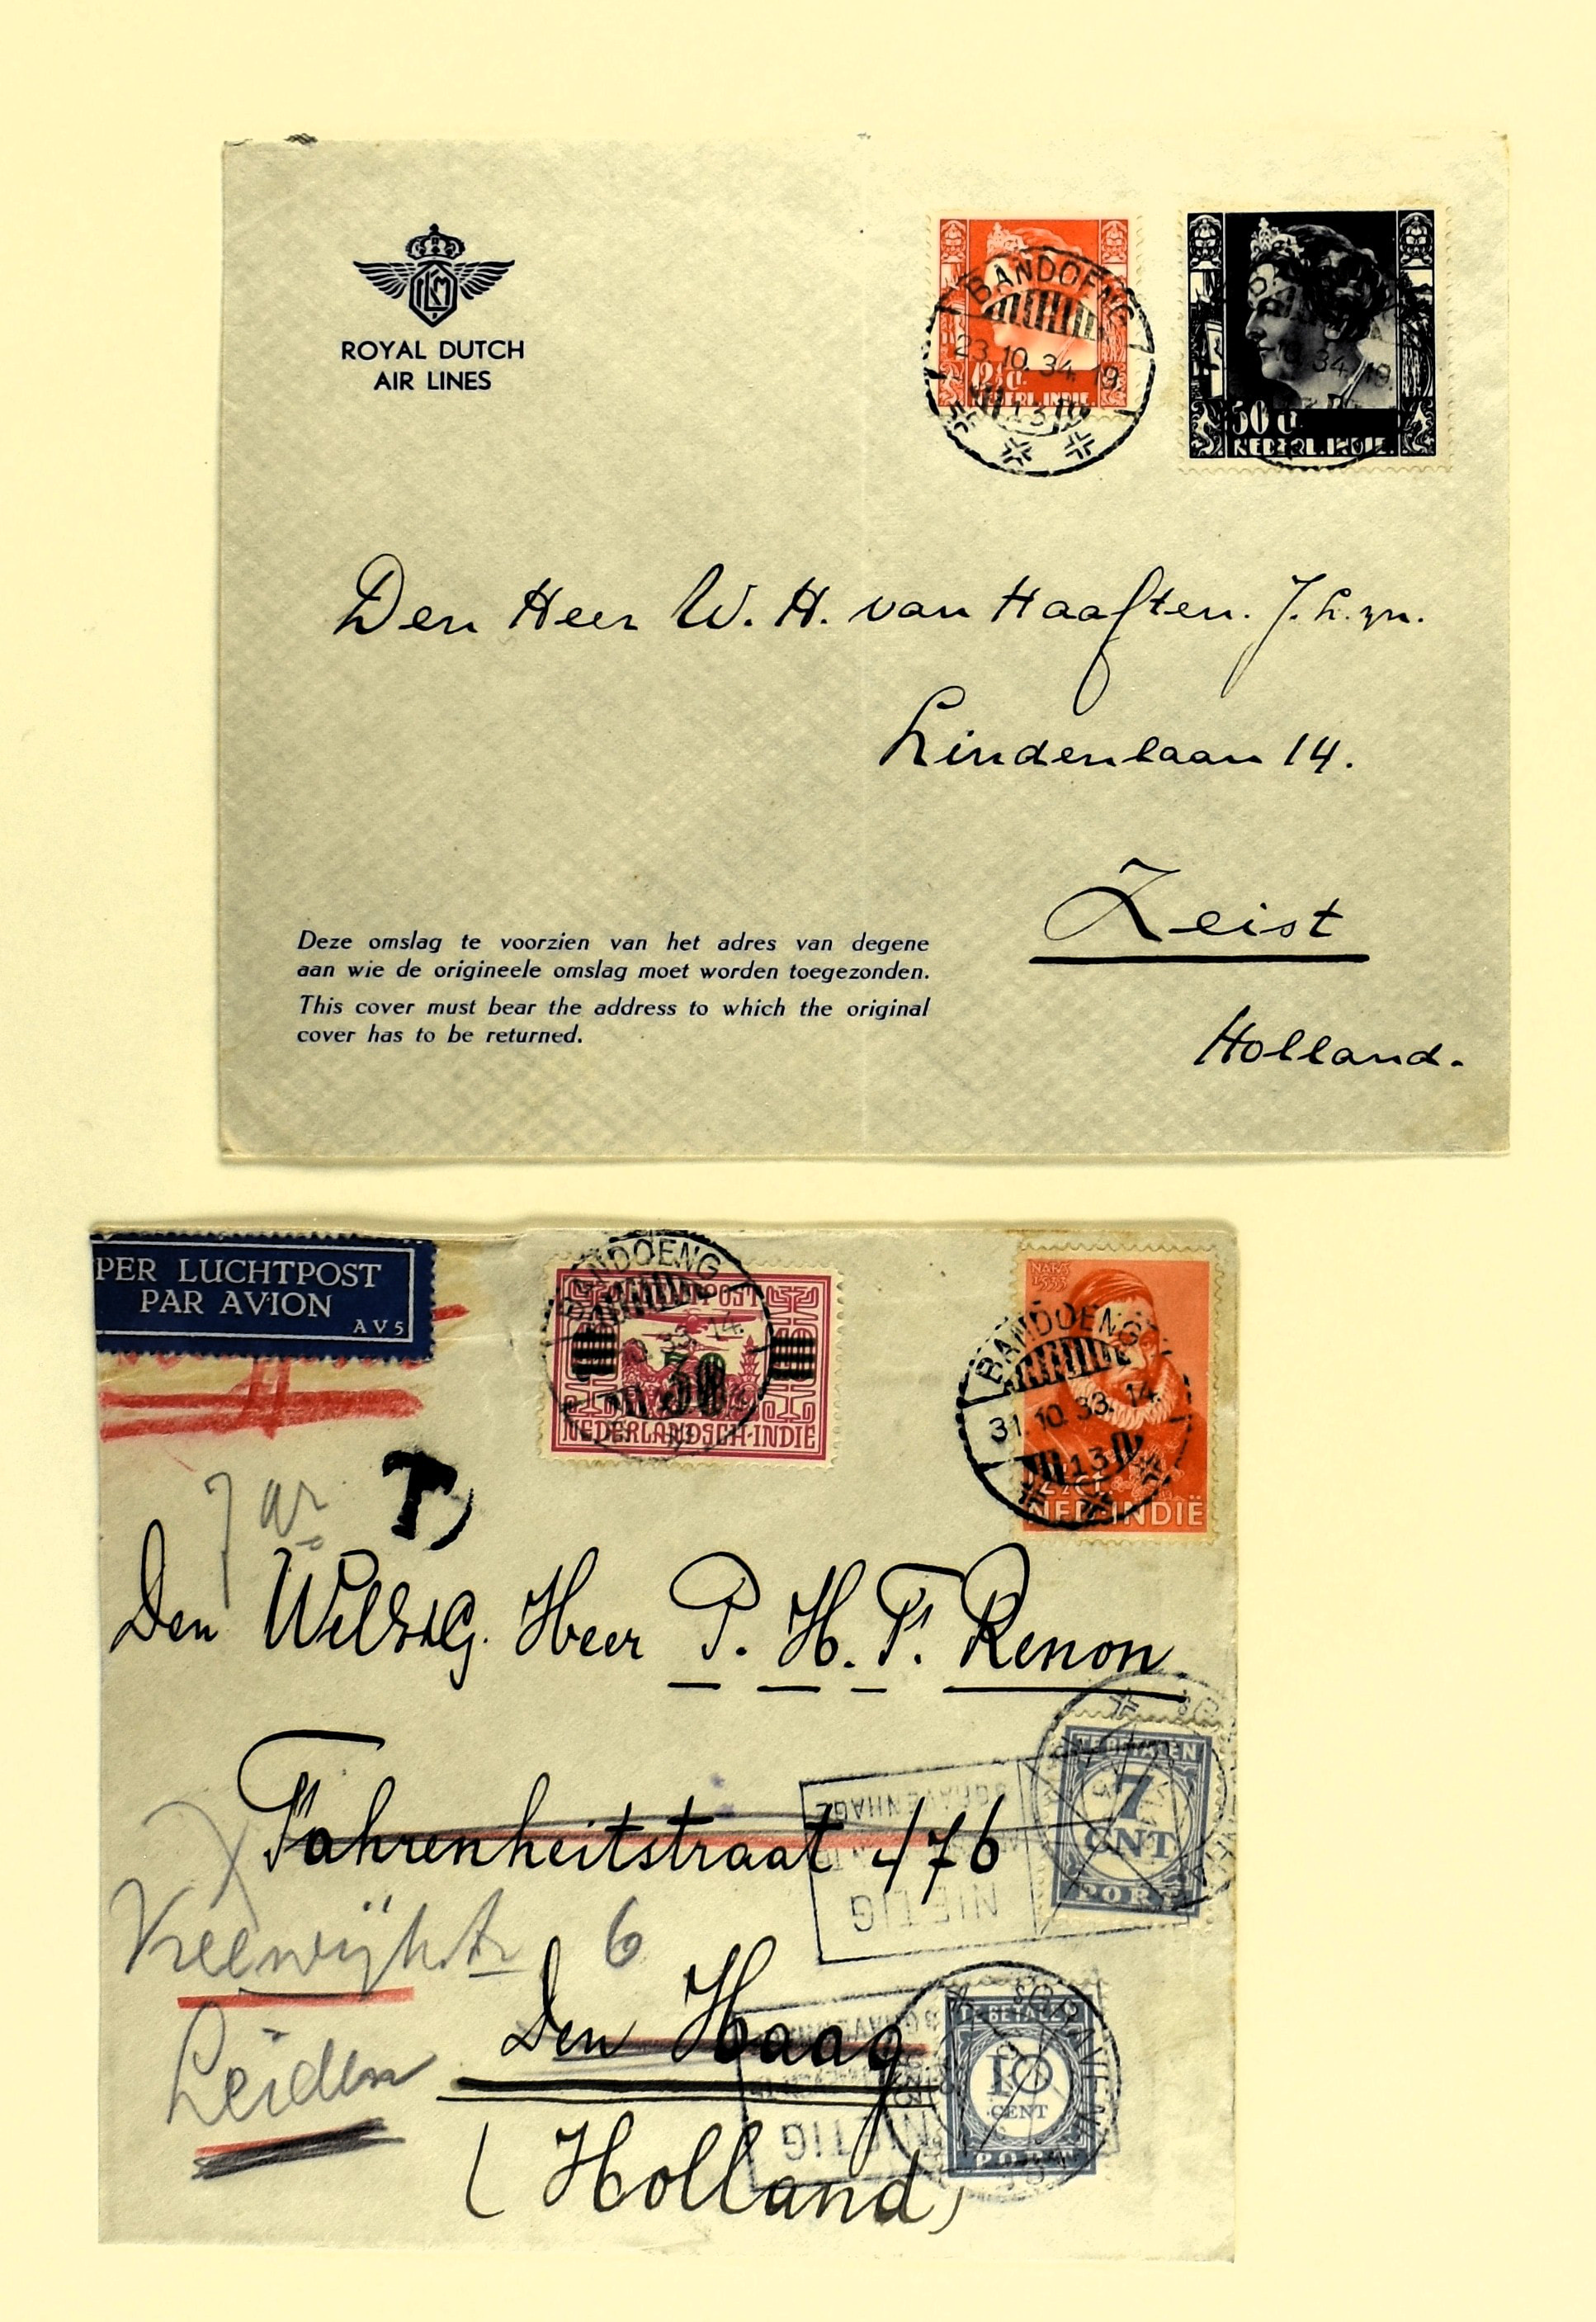 KLM
ROYAL DUTCH
AIR LINES
BANDOENG
23.10.34.19.
13
12½ ct.
NEDERL. INDIE.
34.19.
50 ct
NEDERL. INDIE.
Den Heer W. H. van Haaften. J.L.zn.
Lindenlaan 14.
Zeist
Holland.
Deze omslag te voorzien van het adres van degene
aan wie de origineele omslag moet worden toegezonden.
This cover must bear the address to which the original
cover has to be returned.
PER LUCHTPOST
PAR AVION
AV5
BANDOENG
33.14.
30
NEDERLANDSCH-INDIË
1533
BANDOENG
31.10.33.14.
13
NED-INDIË
T
Den WelEdG. Heer P. H. F. Renon.
Fahrenheitstraat 476
TE BETALEN
7
CNT
PORT
'S GRAVENHAGE
NIETIG
6
Den Haag
Leiden
(Holland)
'S GRAVENHAGE
NIETIG
TE BETALEN
10
CENT
PORT